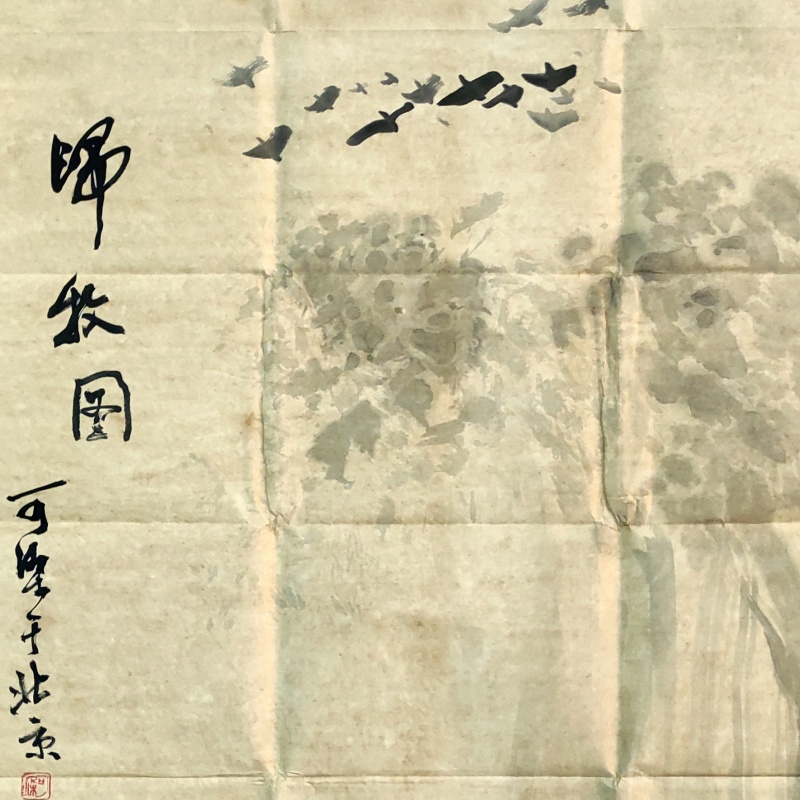 歸牧图
可染于北京